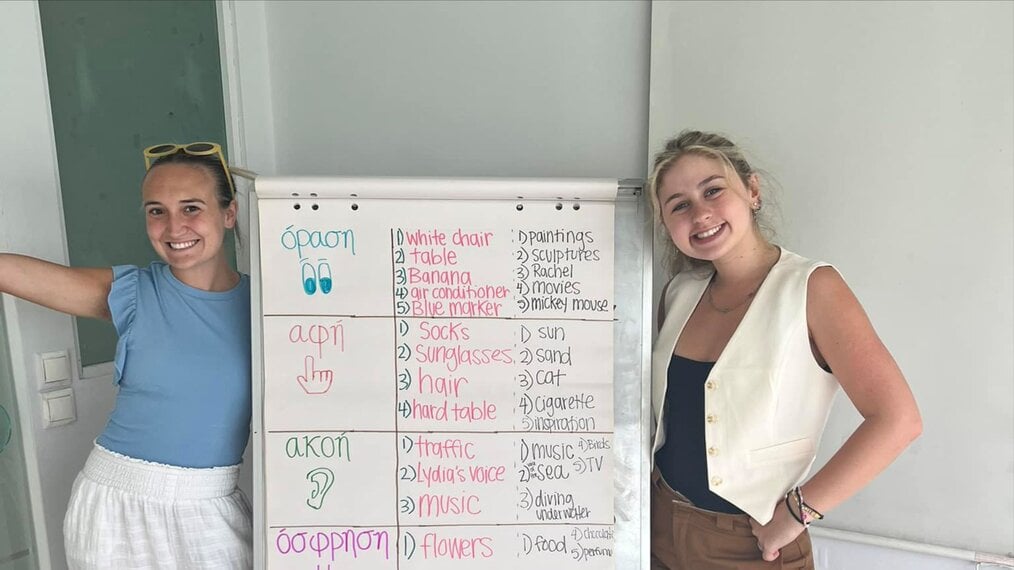 όραση
1) white chair
2) table
3) Banana
4) air conditioner
5) Blue marker
1) paintings
2) sculptures
3) Rachel
4) movies
5) mickey mouse
αφή
1) Socks
2) Sunglasses
3) hair
4) hard table
1) sun
2) sand
3) cat
4) cigarette
5) inspiration
ακοή
1) traffic
2) Lydia's voice
3) music
1) music
2) sea
3) diving
underwater
4) Birds
5) TV
όσφρηση
1) flowers
1) food
4) chocolate
5) perfume